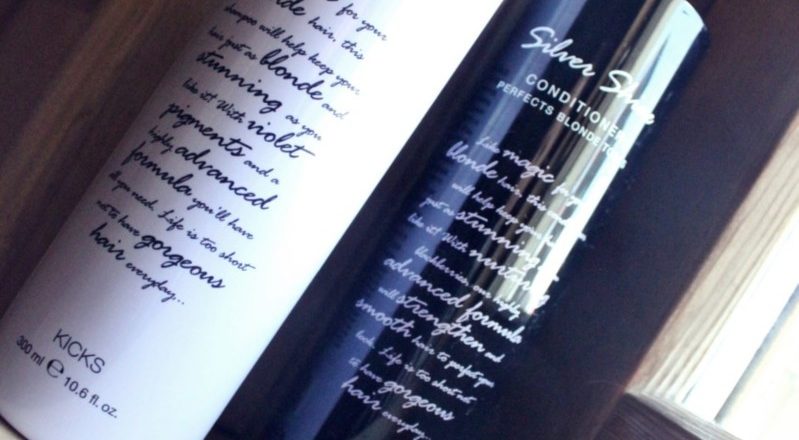 for your
hair, this
shampoo will help keep your
hair just as blonde and
stunning as you
like it! With violet
pigments and a
highly advanced
formula you'll have
all you need. Life is too short
not to have gorgeous
hair everyday...
KICKS
300 ml ℮ 10.6 fl. oz.
Silver
CONDITIONER
PERFECTS BLONDE
Like magic for
blonde hair, this
will help keep your
just as stunning
like it! With nurturing
blackberries, our highly
advanced formula
will strengthen and
smooth hair to perfect your
look. Life is too short not
to have gorgeous
hair everyday...